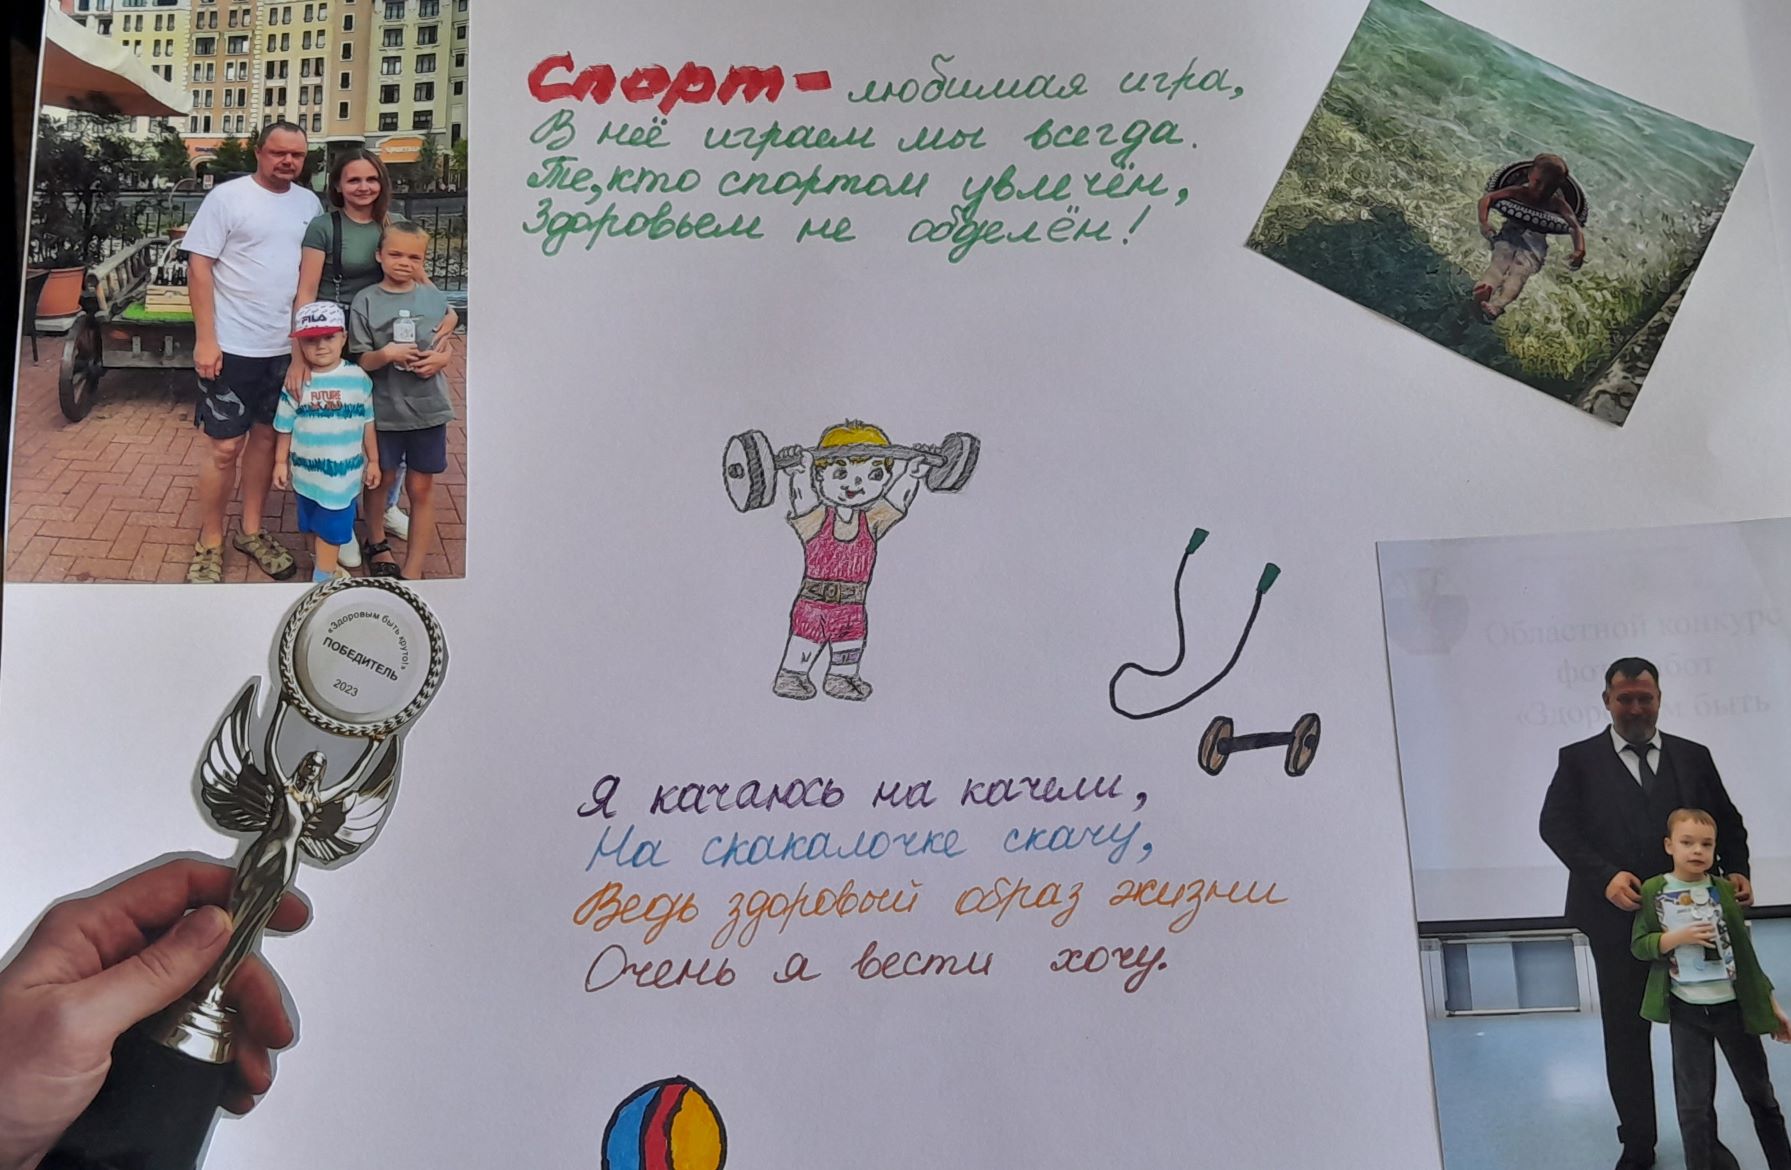 Спорт - любимая игра,
В неё играем мы всегда.
Те, кто спортом увлечён,
Здоровьем не обделён!
FILA
FUTURE
«Здоровым быть круто!»
ПОБЕДИТЕЛЬ
2023
Областной конкурс
«Здоровым быть
Я качаюсь на качели,
На скакалочке скачу,
Ведь здоровый образ жизни
Очень я вести хочу.